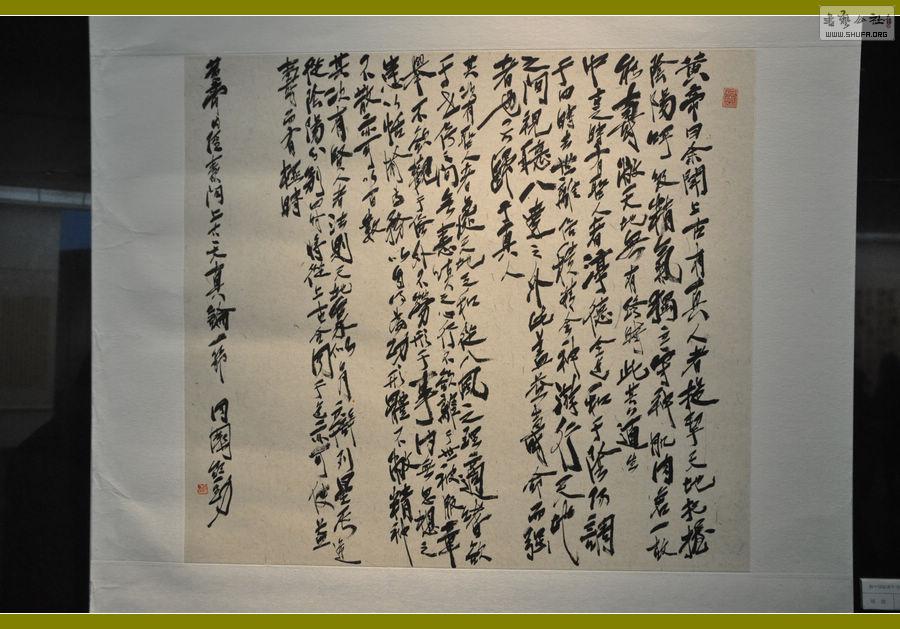 黄帝曰余闻上古有真人者提挈天地把握
陰陽呼吸精氣獨立守神肌肉若一故
能壽敝天地無有終時此其道生
中古之時有至人者淳德全道和于陰陽調
于四時去世離俗積精全神游行天地
之間視聽八達之外此蓋益其壽命而強
者也亦歸于真人
其次有聖人者處天地之和從八風之理適嗜欲
于世俗之間無恚嗔之心行不欲離于世被服章
舉不欲觀于俗外不勞形于事内無思想之
患以恬愉為務以自得為功形體不敝精神
不散亦可以百數
其次有賢人者法則天地象似日月辯列星辰逆
從陰陽分别四時將從上古合同于道亦可使益
壽而有極時
黄帝内經素問上古天真論一節
書藝公社
WWW.SHUFA.ORG